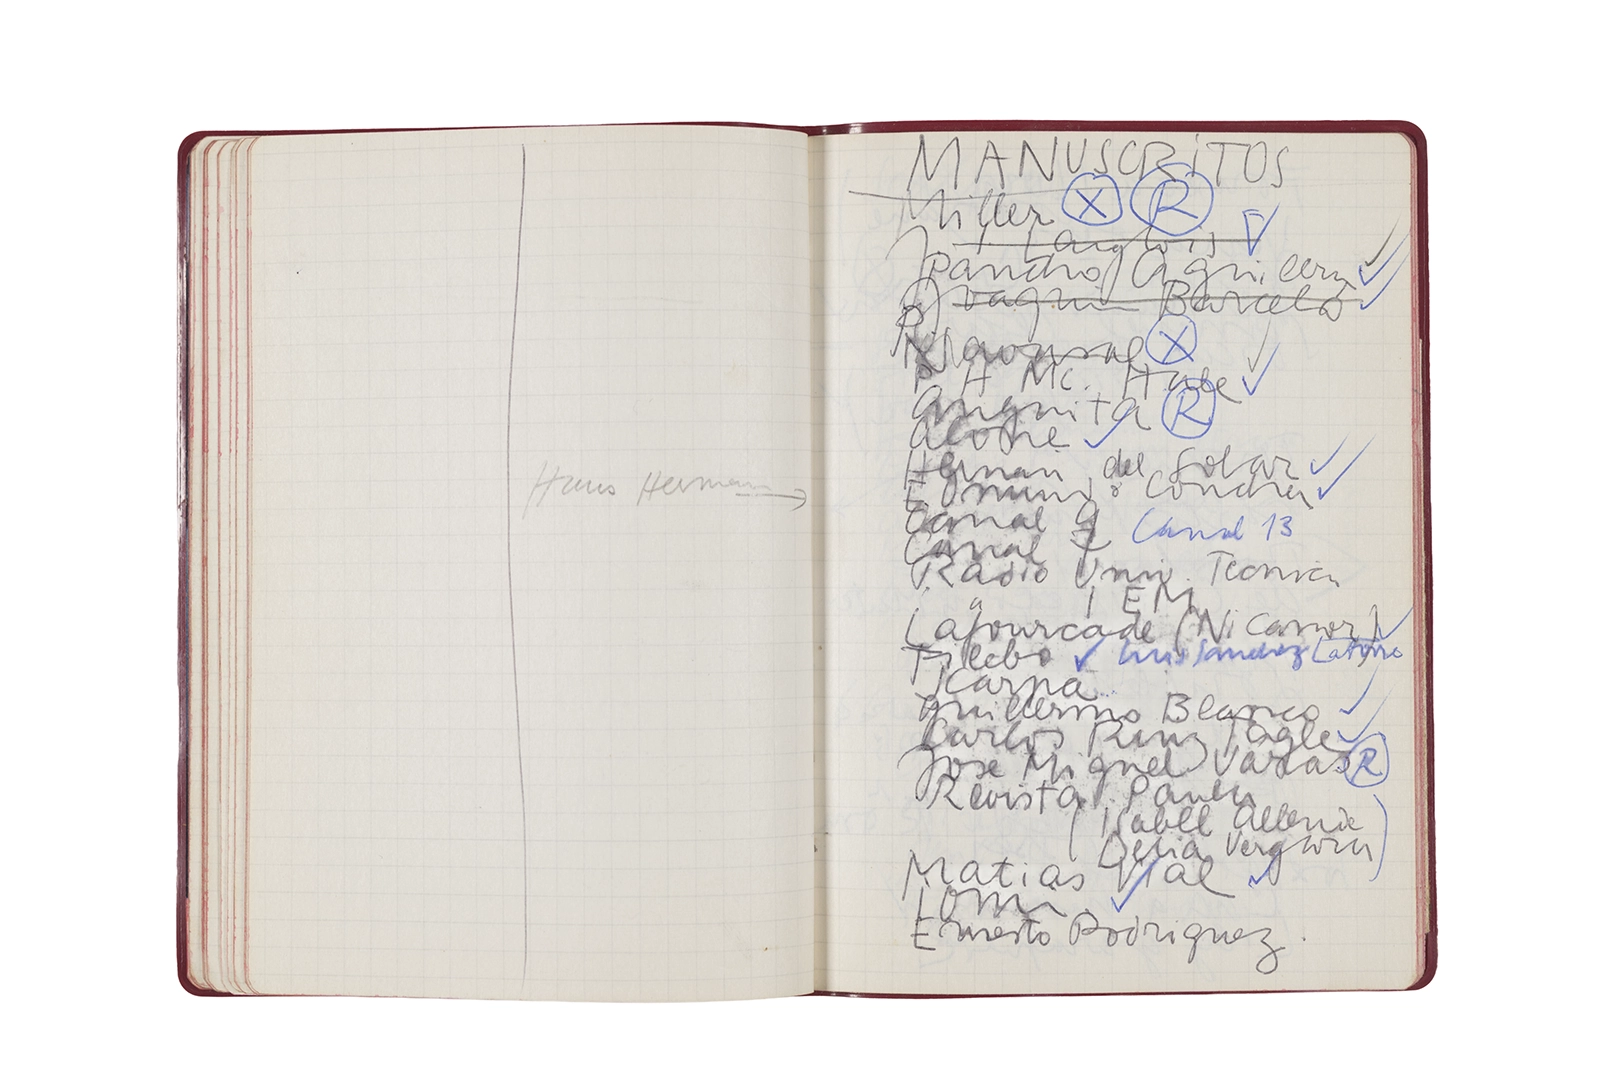 Hans Hermann
MANUSCRITOS
Miller X R
Langlois
Aguilera
Joaquin Barcelo
X
H Mc. Hale
Anguita R
Alone
Hernan del Solar
Edmundo Concha
Canal 9 Canal 13
Canal 7
Radio Univ. Tecnica
" IEM
Lafourcade (Nicanor)
Filebo Luis Sanchez Latorre
Icarpa
Guillermo Blanco
Carlos Ruiz Tagle
Jose Miguel Varas R
Revista Paula
(Isabel Allende
Delia Vergara)
Matias Vial
Lomi
Ernesto Rodriguez.